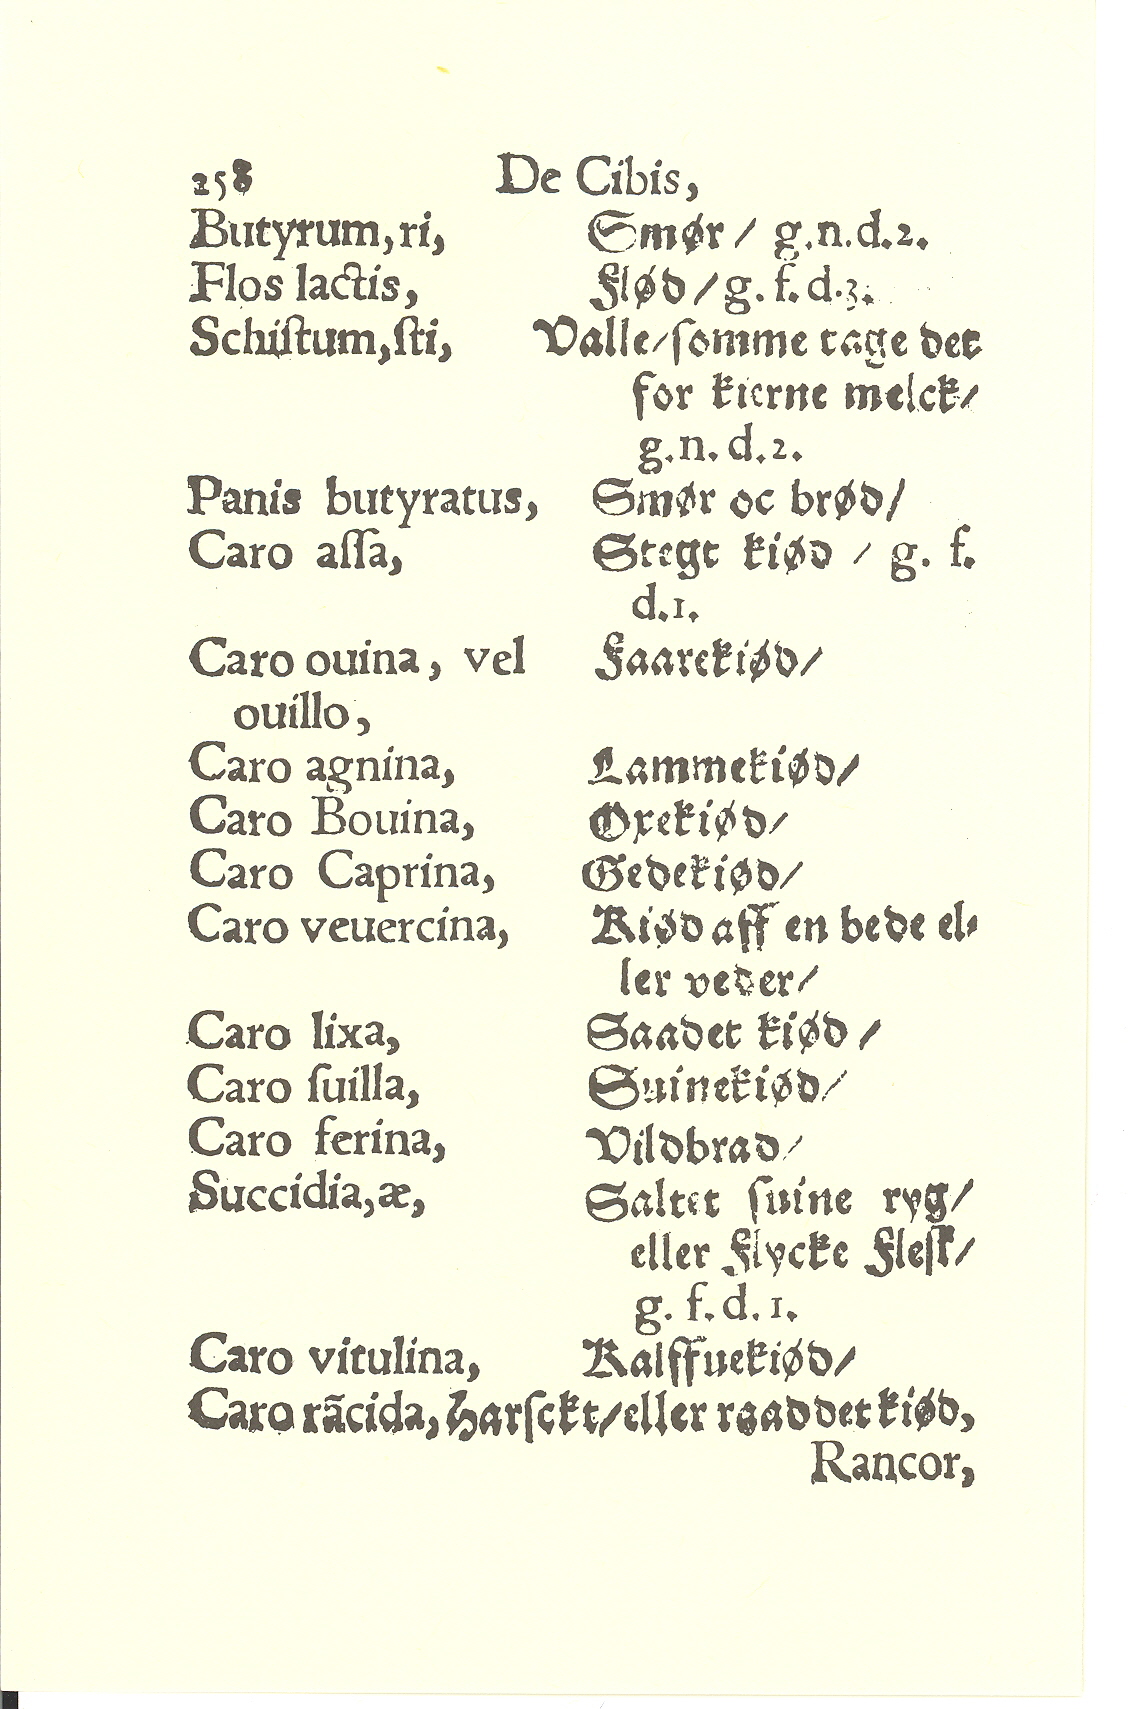 258 De Cibis,
Butyrum, ri, Smør / g.n.d.2.
Flos lactis, Flød / g. f. d.3.
Schiſtum, ſti, Valle / ſomme tage det
for kierne melck /
g.n. d.2.
Panis butyratus, Smør oc brød /
Caro aſſa, Stegt kiød / g. f.
d.1.
Caro ouina, vel Faarekiød /
ouillo,
Caro agnina, Lammekiød /
Caro Bouina, Oxekiød /
Caro Caprina, Gedekiød /
Caro veuercina, Kiød aff en bede el⸗
ler veder /
Caro lixa, Saadet kiød /
Caro ſuilla, Suinekiød /
Caro ferina, Vildbrad /
Succidia, æ, Saltet ſuine ryg /
eller Flycke Fleſk /
g. f. d. 1.
Caro vitulina, Kalffuekiød /
Caro rãcida, Harſckt / eller raaddet kiød,
Rancor,